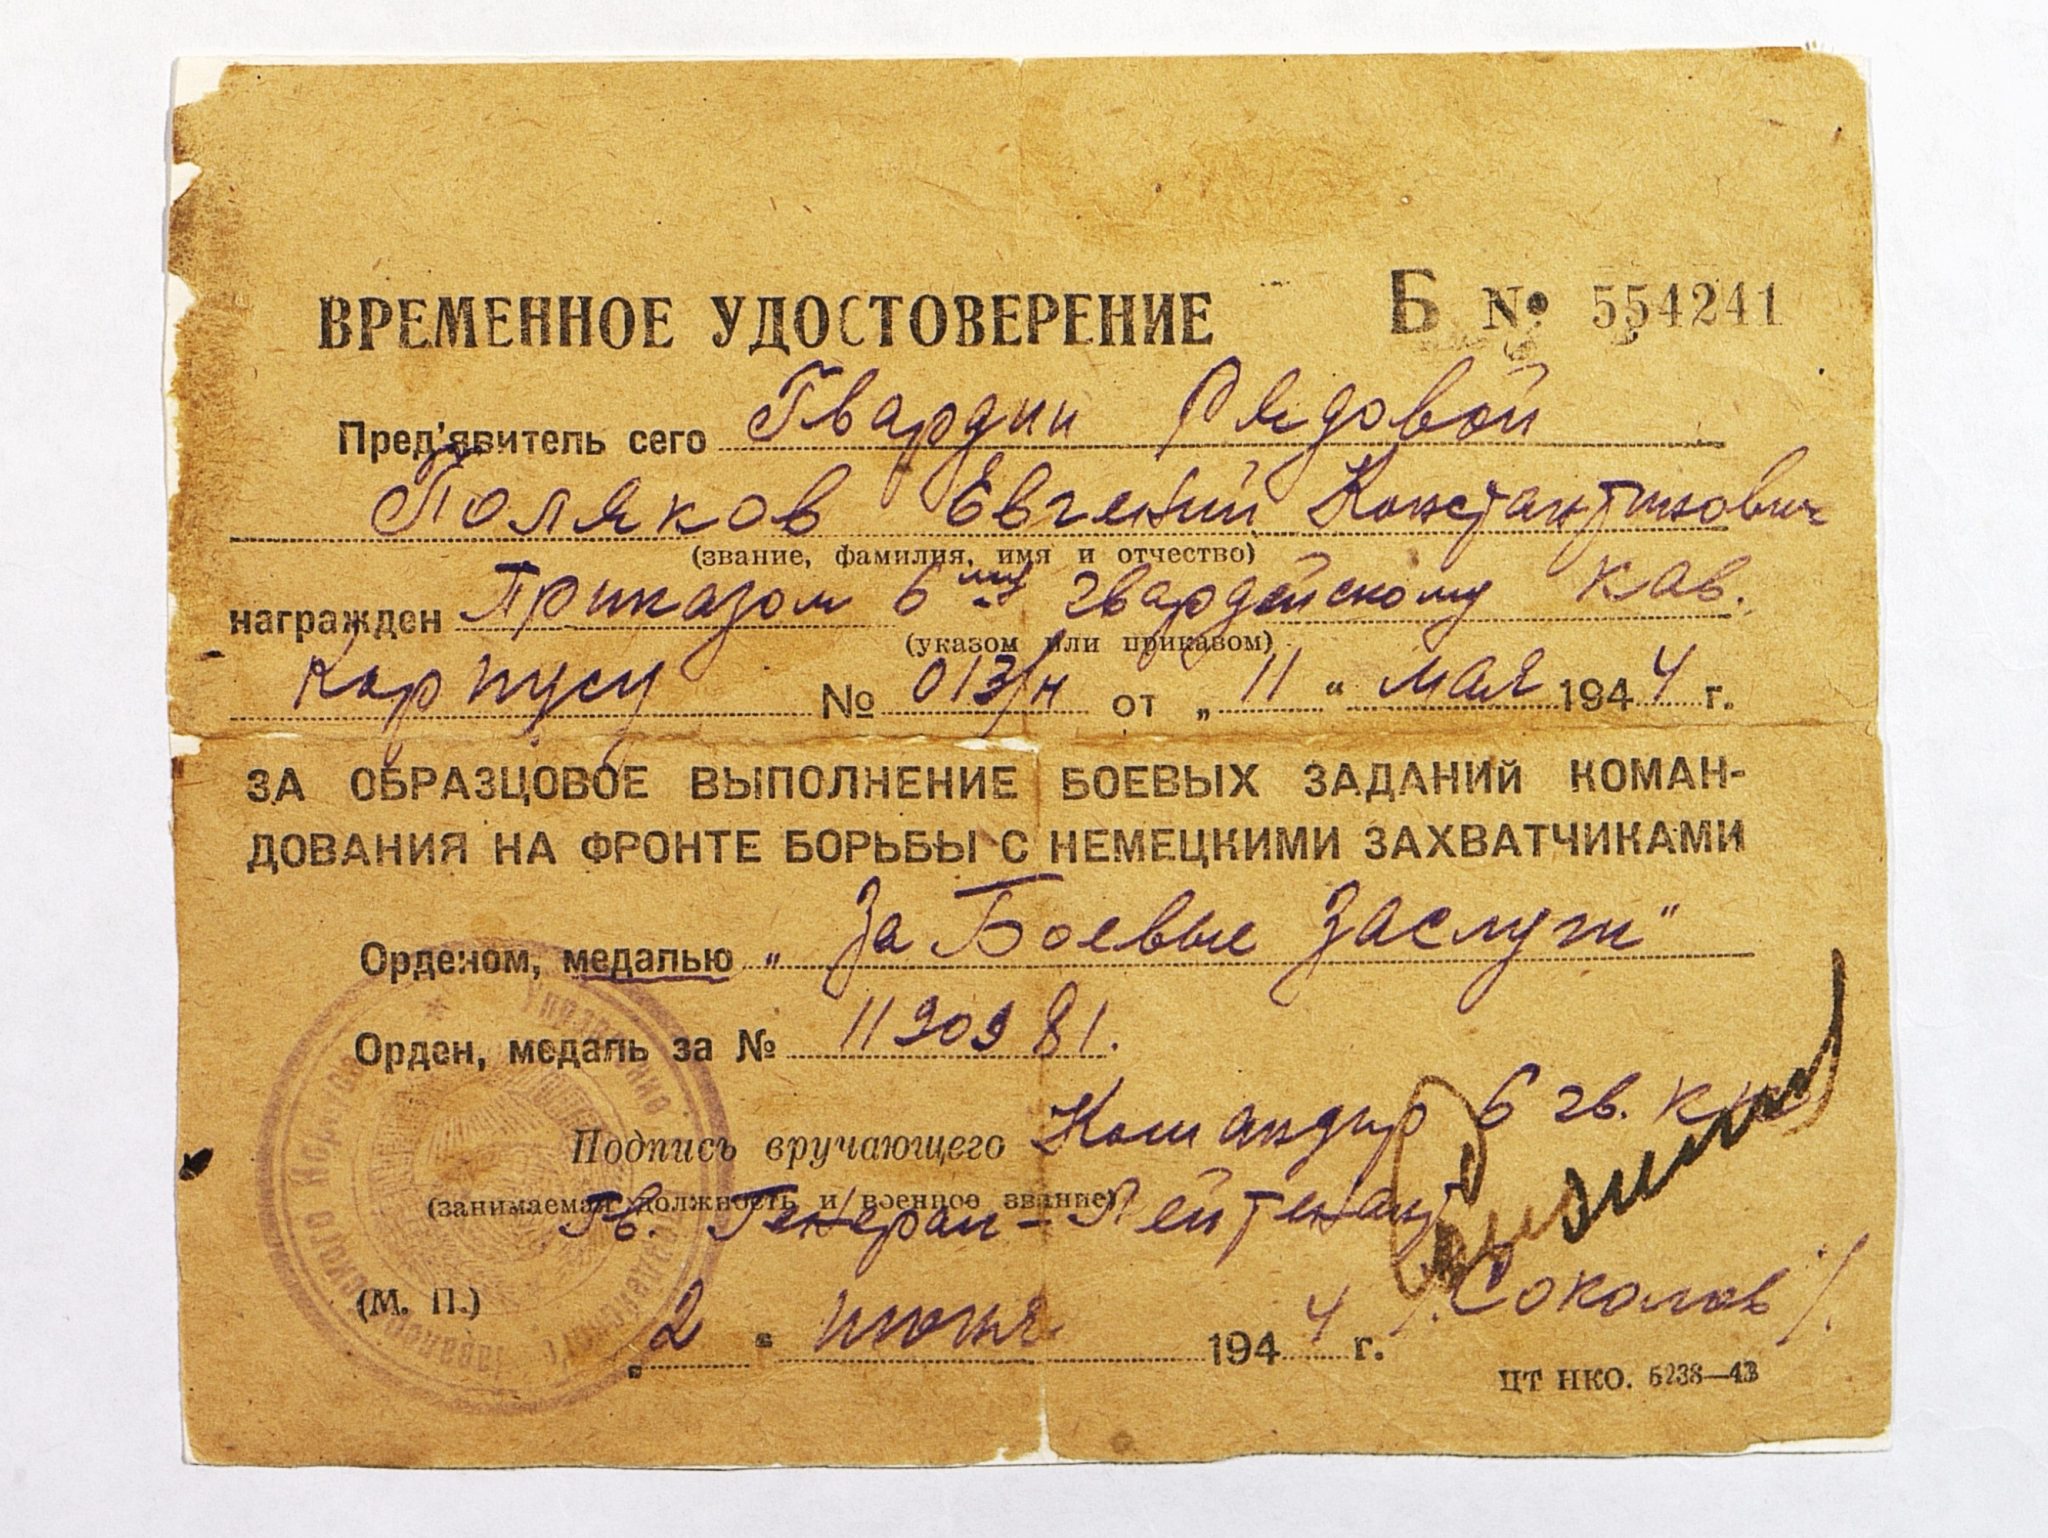 ВРЕМЕННОЕ УДОСТОВЕРЕНИЕ Б № 554241
Пред'явитель сего Гвардии Рядовой
Поляков Евгений Константинович
(звание, фамилия, имя и отчество)
награжден Приказом 6му гвардейскому кав.
(указом или приказом)
Корпусу № 013/н от „11“ мая 1944 г.
ЗА ОБРАЗЦОВОЕ ВЫПОЛНЕНИЕ БОЕВЫХ ЗАДАНИЙ КОМАН-
ДОВАНИЯ НА ФРОНТЕ БОРЬБЫ С НЕМЕЦКИМИ ЗАХВАТЧИКАМИ
Орденом, медалью „За Боевые Заслуги“
Орден, медаль за № 1190981.
Подпись вручающего Командир 6 гв. кк
(занимаемая должность и военное звание)
Гв. Генерал-Лейтенант
/Соколов/.
(М. П.)
„2“ июня 1944 г.
ЦТ НКО. 5238—43